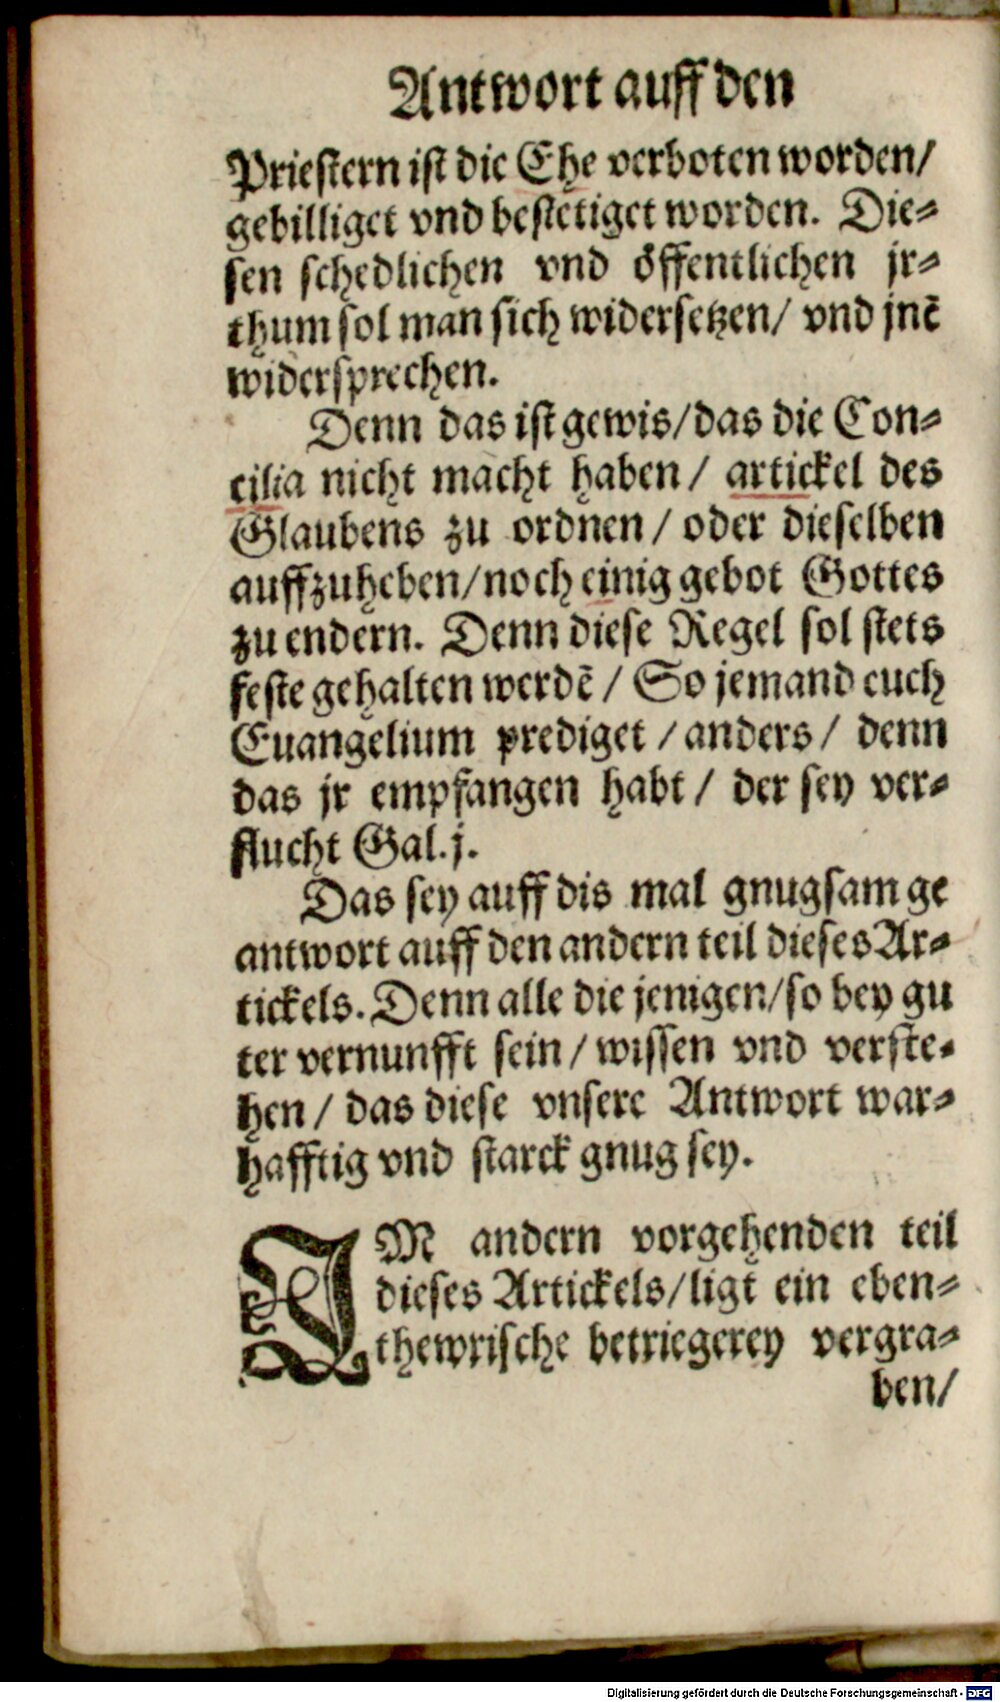 Antwort auff den
Priestern ist die Ehe verboten worden/
gebilliget vnd bestetiget worden. Die⸗
sen schedlichen vnd öffentlichen jr⸗
thum sol man sich widersetzen/ vnd jnē
widersprechen.
Denn das ist gewis/das die Con⸗
cilia nicht macht haben/ artickel des
Glaubens zu ordnen/ oder dieselben
auffzuheben/noch einig gebot Gottes
zu endern. Denn diese Regel sol stets
feste gehalten werdē/ So jemand euch
Euangelium prediget/anders/ denn
das jr empfangen habt/ der sey ver⸗
flucht Gal. j.
Das sey auff dis mal gnugsam ge
antwort auff den andern teil dieses Ar⸗
tickels. Denn alle die jenigen/so bey gu
ter vernunfft sein/ wissen vnd verste⸗
hen/ das diese vnsere Antwort war⸗
hafftig vnd starck gnug sey.
IM andern vorgehenden teil
dieses Artickels/ligt ein eben⸗
thewrische betriegerey vergra⸗
ben/
Digitalisierung gefördert durch die Deutsche Forschungsgemeinschaft - DFG